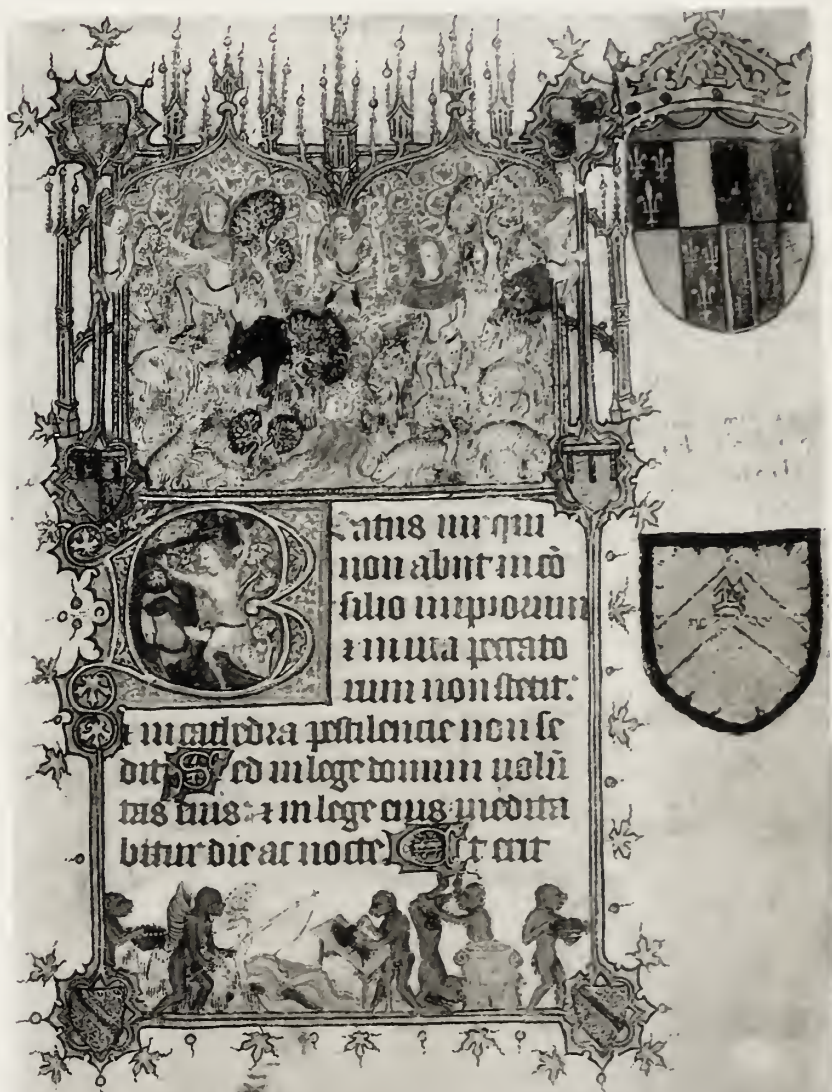 Beatus uir qui
non abiit in cō
silio impiorum
⁊ in uia peccato
rum non stetit:
⁊ in cathedra pestilencie non se
dit Sed in lege domini uolū
tas eius: ⁊ in lege eius medita
bitur die ac nocte Et erit